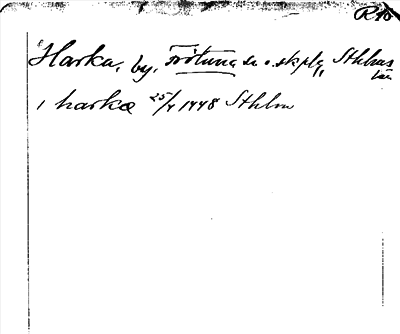 R 10
Harka, by, Frötuna sn o. skplg, Sthlms
län
i harka 25/4 1448 Sthlm